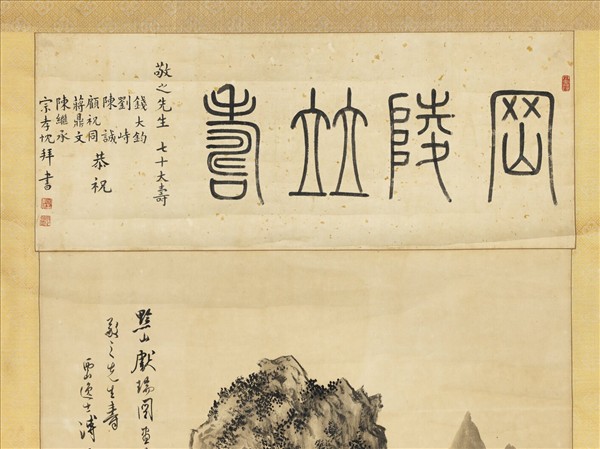 岡陵竝壽
敬之先生 七十大壽
錢大鈞
劉峙
陳誠
顧祝同
蔣鼎文
陳繼承
恭祝
宗孝忱拜書
黟山獻瑞圖
敬之先生壽
西山逸士溥